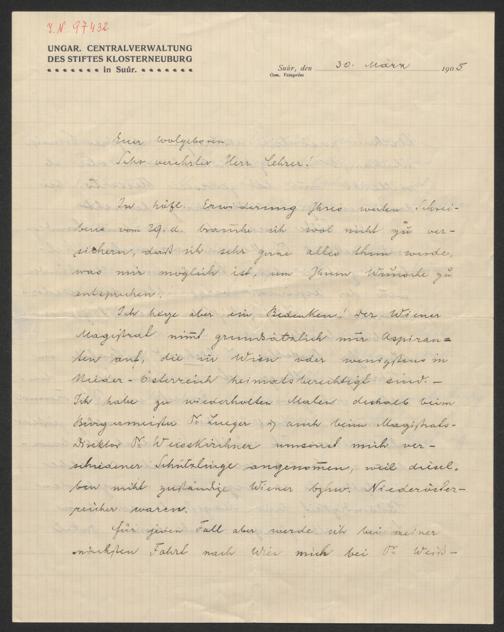 I. N. 97432
UNGAR. CENTRALVERWALTUNG
DES STIFTES KLOSTERNEUBURG
in Suúr.
Suúr, den 30. März 1905
Com. Veszprém
Euer Wolgeboren
Sehr verehrter Herr Lehrer!
In höfl. Erwiderung Ihres werten Schrei-
bens vom 29. d. brauche ich wol nicht zu ver-
sichern, daß ich sehr gerne alles thun werde,
was mir möglich ist, um Ihrem Wunsche zu
entsprechen.
Ich hege aber ein Bedenken! Der Wiener
Magistrat nimt grundsätzlich nur Aspiran-
ten auf, die in Wien oder wenigstens in
Nieder-Österreich heimatsberechtigt sind. –
Ich habe zu wiederholten Malen deshalb beim
Bürgermeister Dr. Lueger & auch beim Magistrats-
Direktor Dr. Weisskirchner umsonst mich ver-
schiedener Schützlinge angenommen, weil diesel-
ben nicht zuständige Wiener bzhw. Niederöster-
reicher waren.
Für jeden Fall aber werde ich bei meiner
nächsten Fahrt nach Wien mich bei Dr. Weiß-